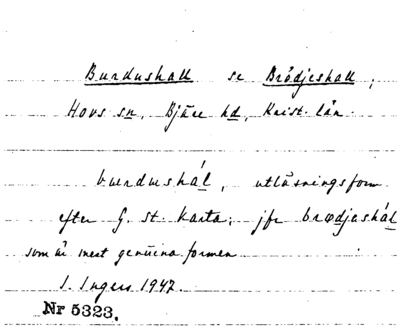 Burdushall se Brödjeshall,
Hovs sn, Bjäre hd, Krist. län.
burdushál, utläsningsform
efter G. st. karta; jfr brødjeshál
som är mest genuina formen
I. Ingers 1947.
Nr 5323.